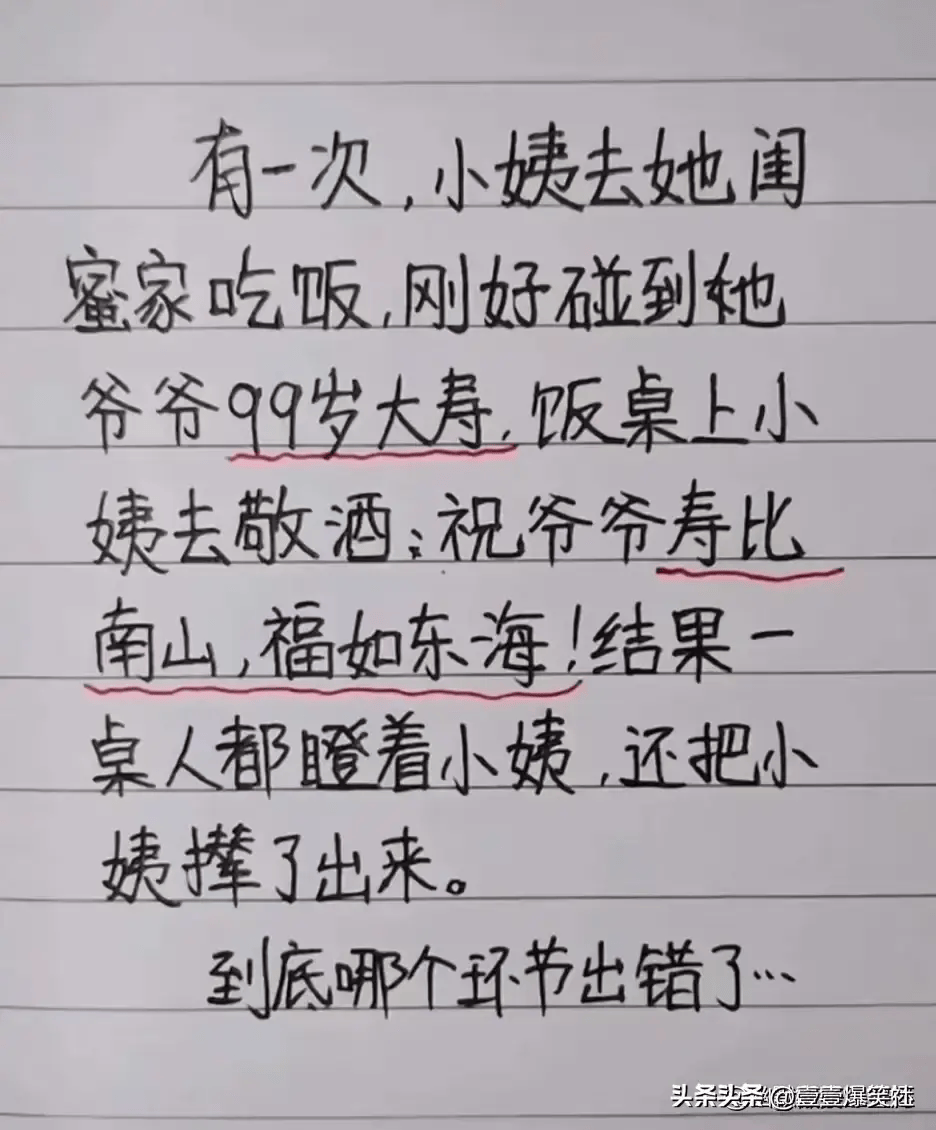 有一次,小姨去她闺
蜜家吃饭,刚好碰到她
爷爷99岁大寿,饭桌上小
姨去敬酒:祝爷爷寿比
南山,福如东海!结果一
桌人都瞪着小姨,还把小
姨撵了出来。
到底哪个环节出错了…
头条头条@壹壹爆笑社